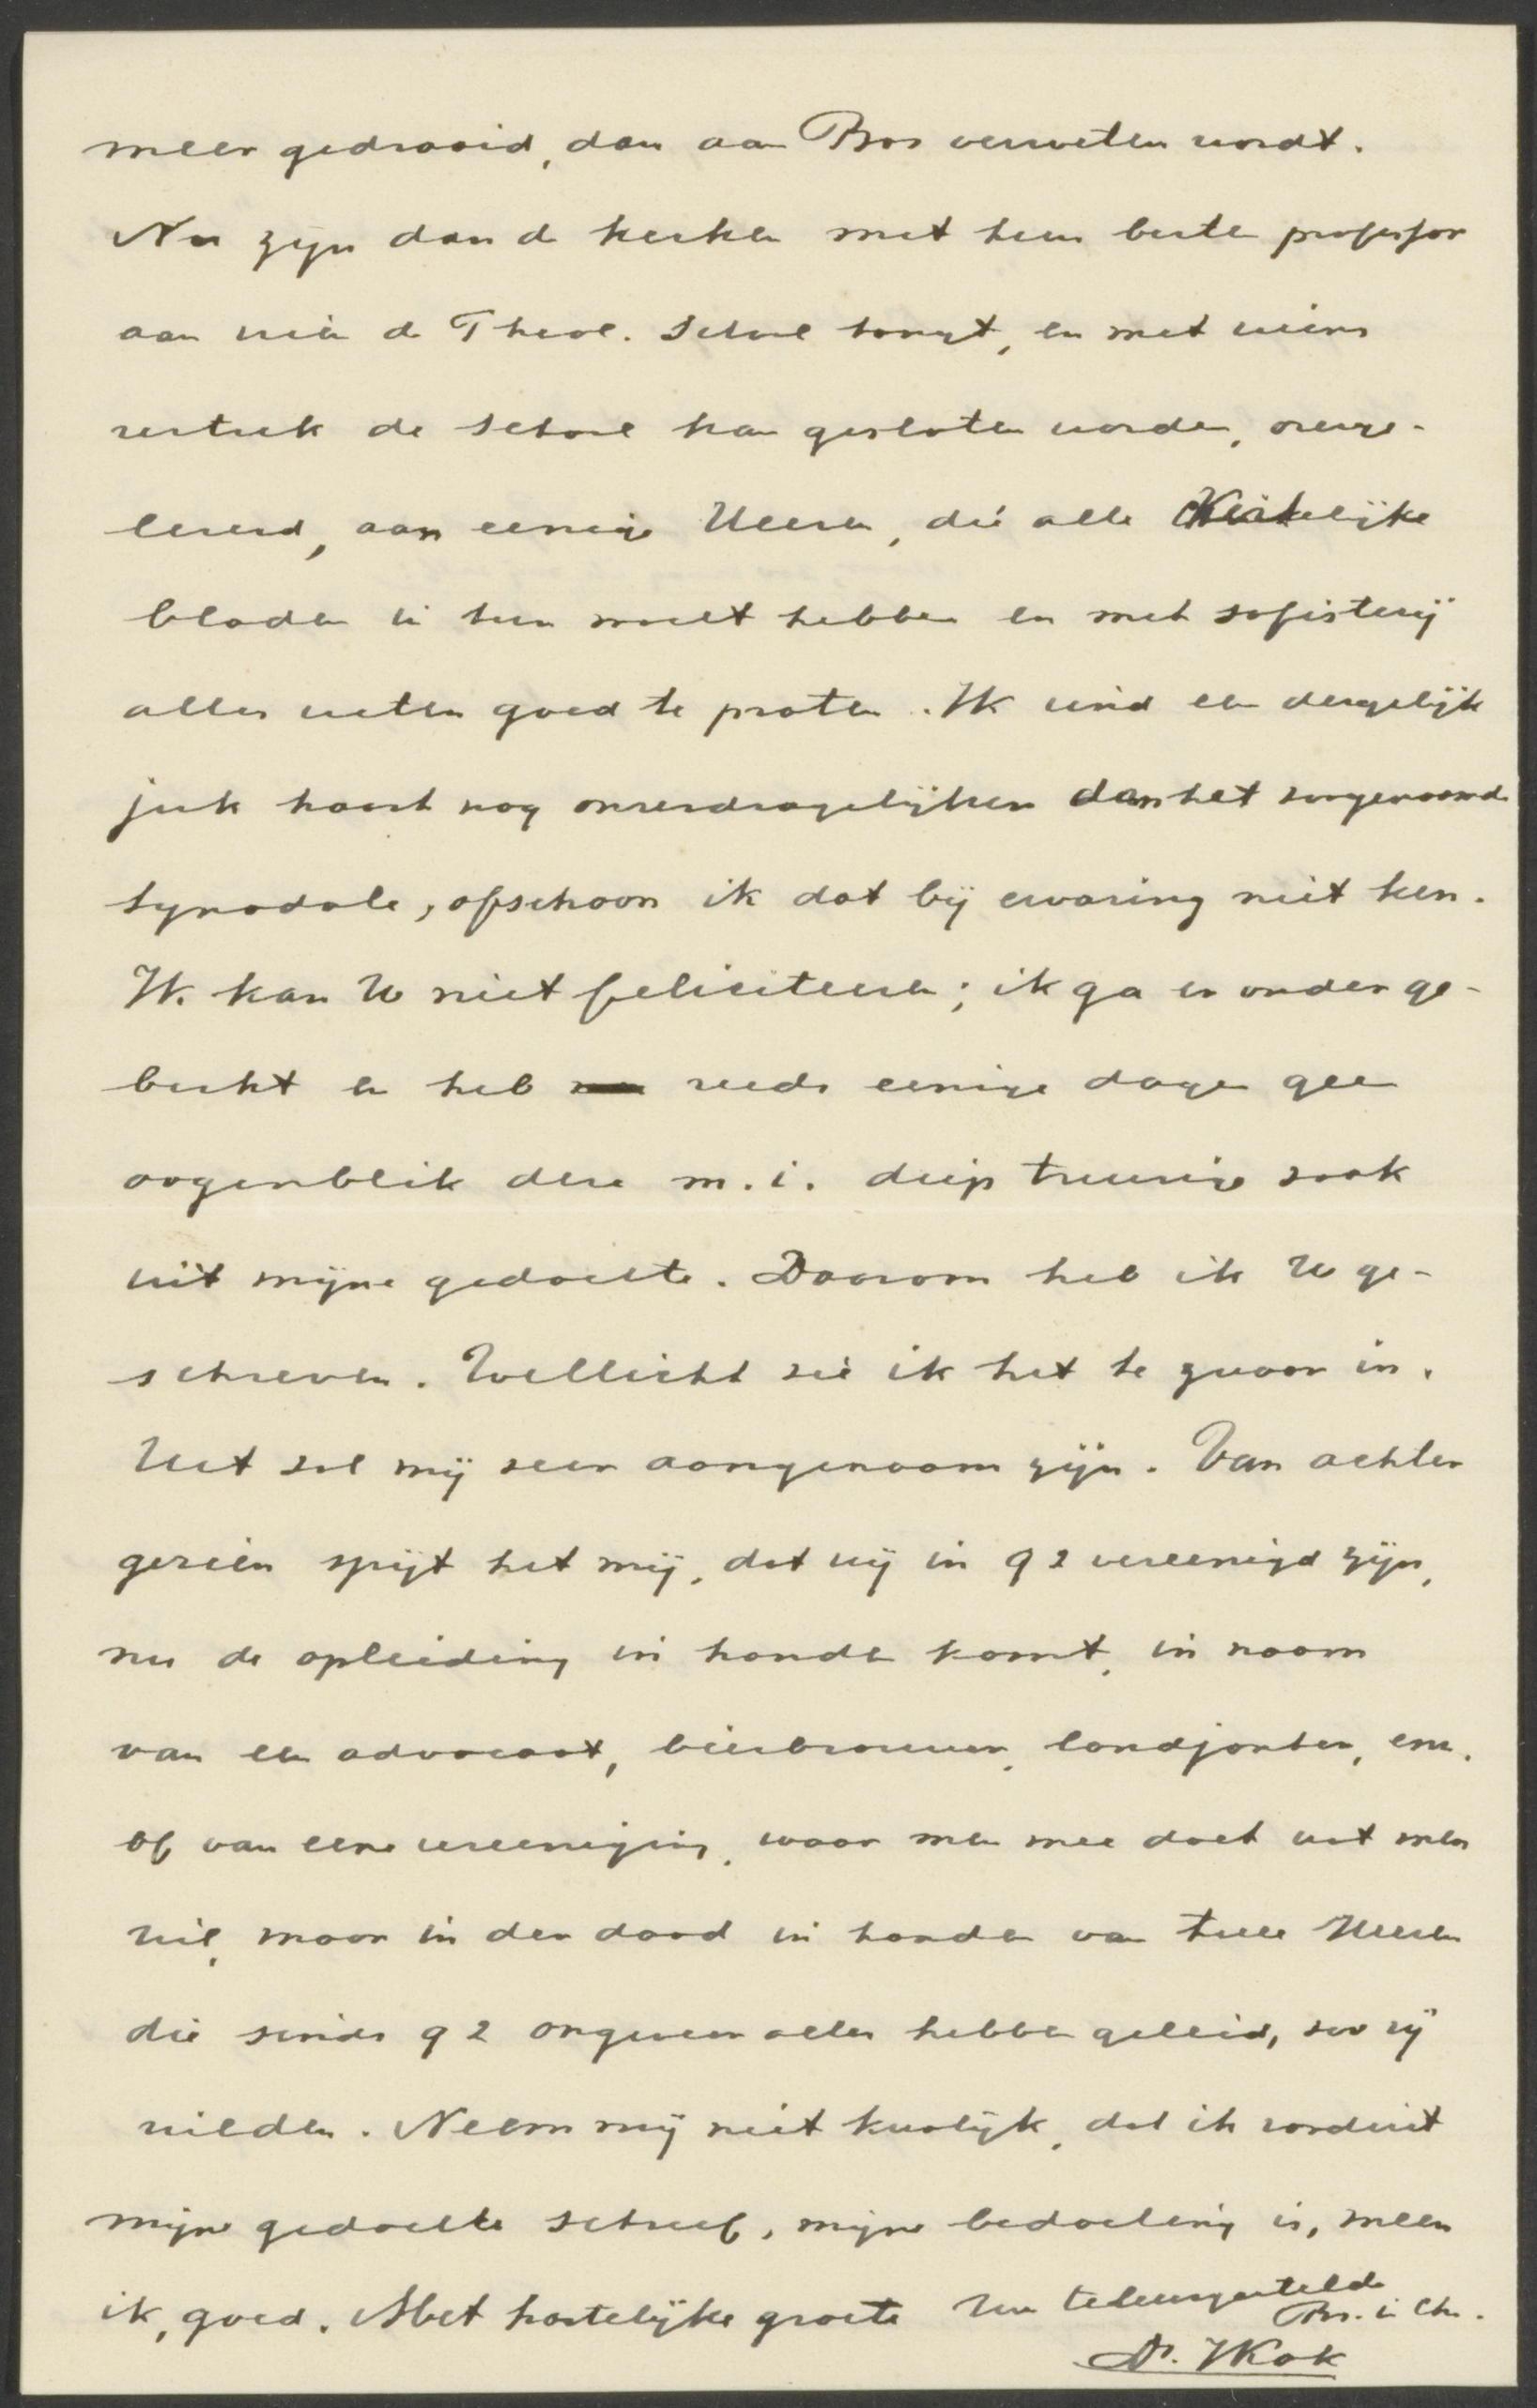 meer gedraaid, dan aan Bos verweten wordt.
Nu zijn dan de kerken met hun beste professor
aan wien de Theol. School hangt, en met wiens
vertrek de School kan gesloten worden, overge-
leverd, aan eenige Heeren, die alle Kerkelijke
bladen in hun macht hebben en met sofisterij
alles weten goed te praten. Ik vind een dergelijk
juk haast nog onverdragelijker dan het zoogenaamd
synodale, ofschoon ik dat bij ervaring niet ken.
Ik kan U niet feliciteeren; ik ga er onder ge-
bukt en heb reeds eenige dagen geen
oogenblik deze m.i. diep treurige zaak
uit mijne gedachte. Daarom heb ik U ge-
schreven. Wellicht zie ik het te zwaar in.
Het zal mij zeer aangenaam zijn. Van achter
gezien spijt het mij, dat wij in 92 vereenigd zijn,
nu de opleiding in handen komt, in naam
van een advocaat, bierbrouwer, landjonker, enz.
of van eene vereeniging, waar men mee doet wat men
wil, maar in der daad in handen van twee Heeren
die sinds 92 ongeveer alles hebben geleid, zoo zij
wilden. Neem mij niet kwalijk, dat ik ronduit
mijne gedachte schreef, mijne bedoeling is, meen
ik, goed. Met hartelijke groete Uw teleurgestelde
Br. in Chr.
Ds. J Kok